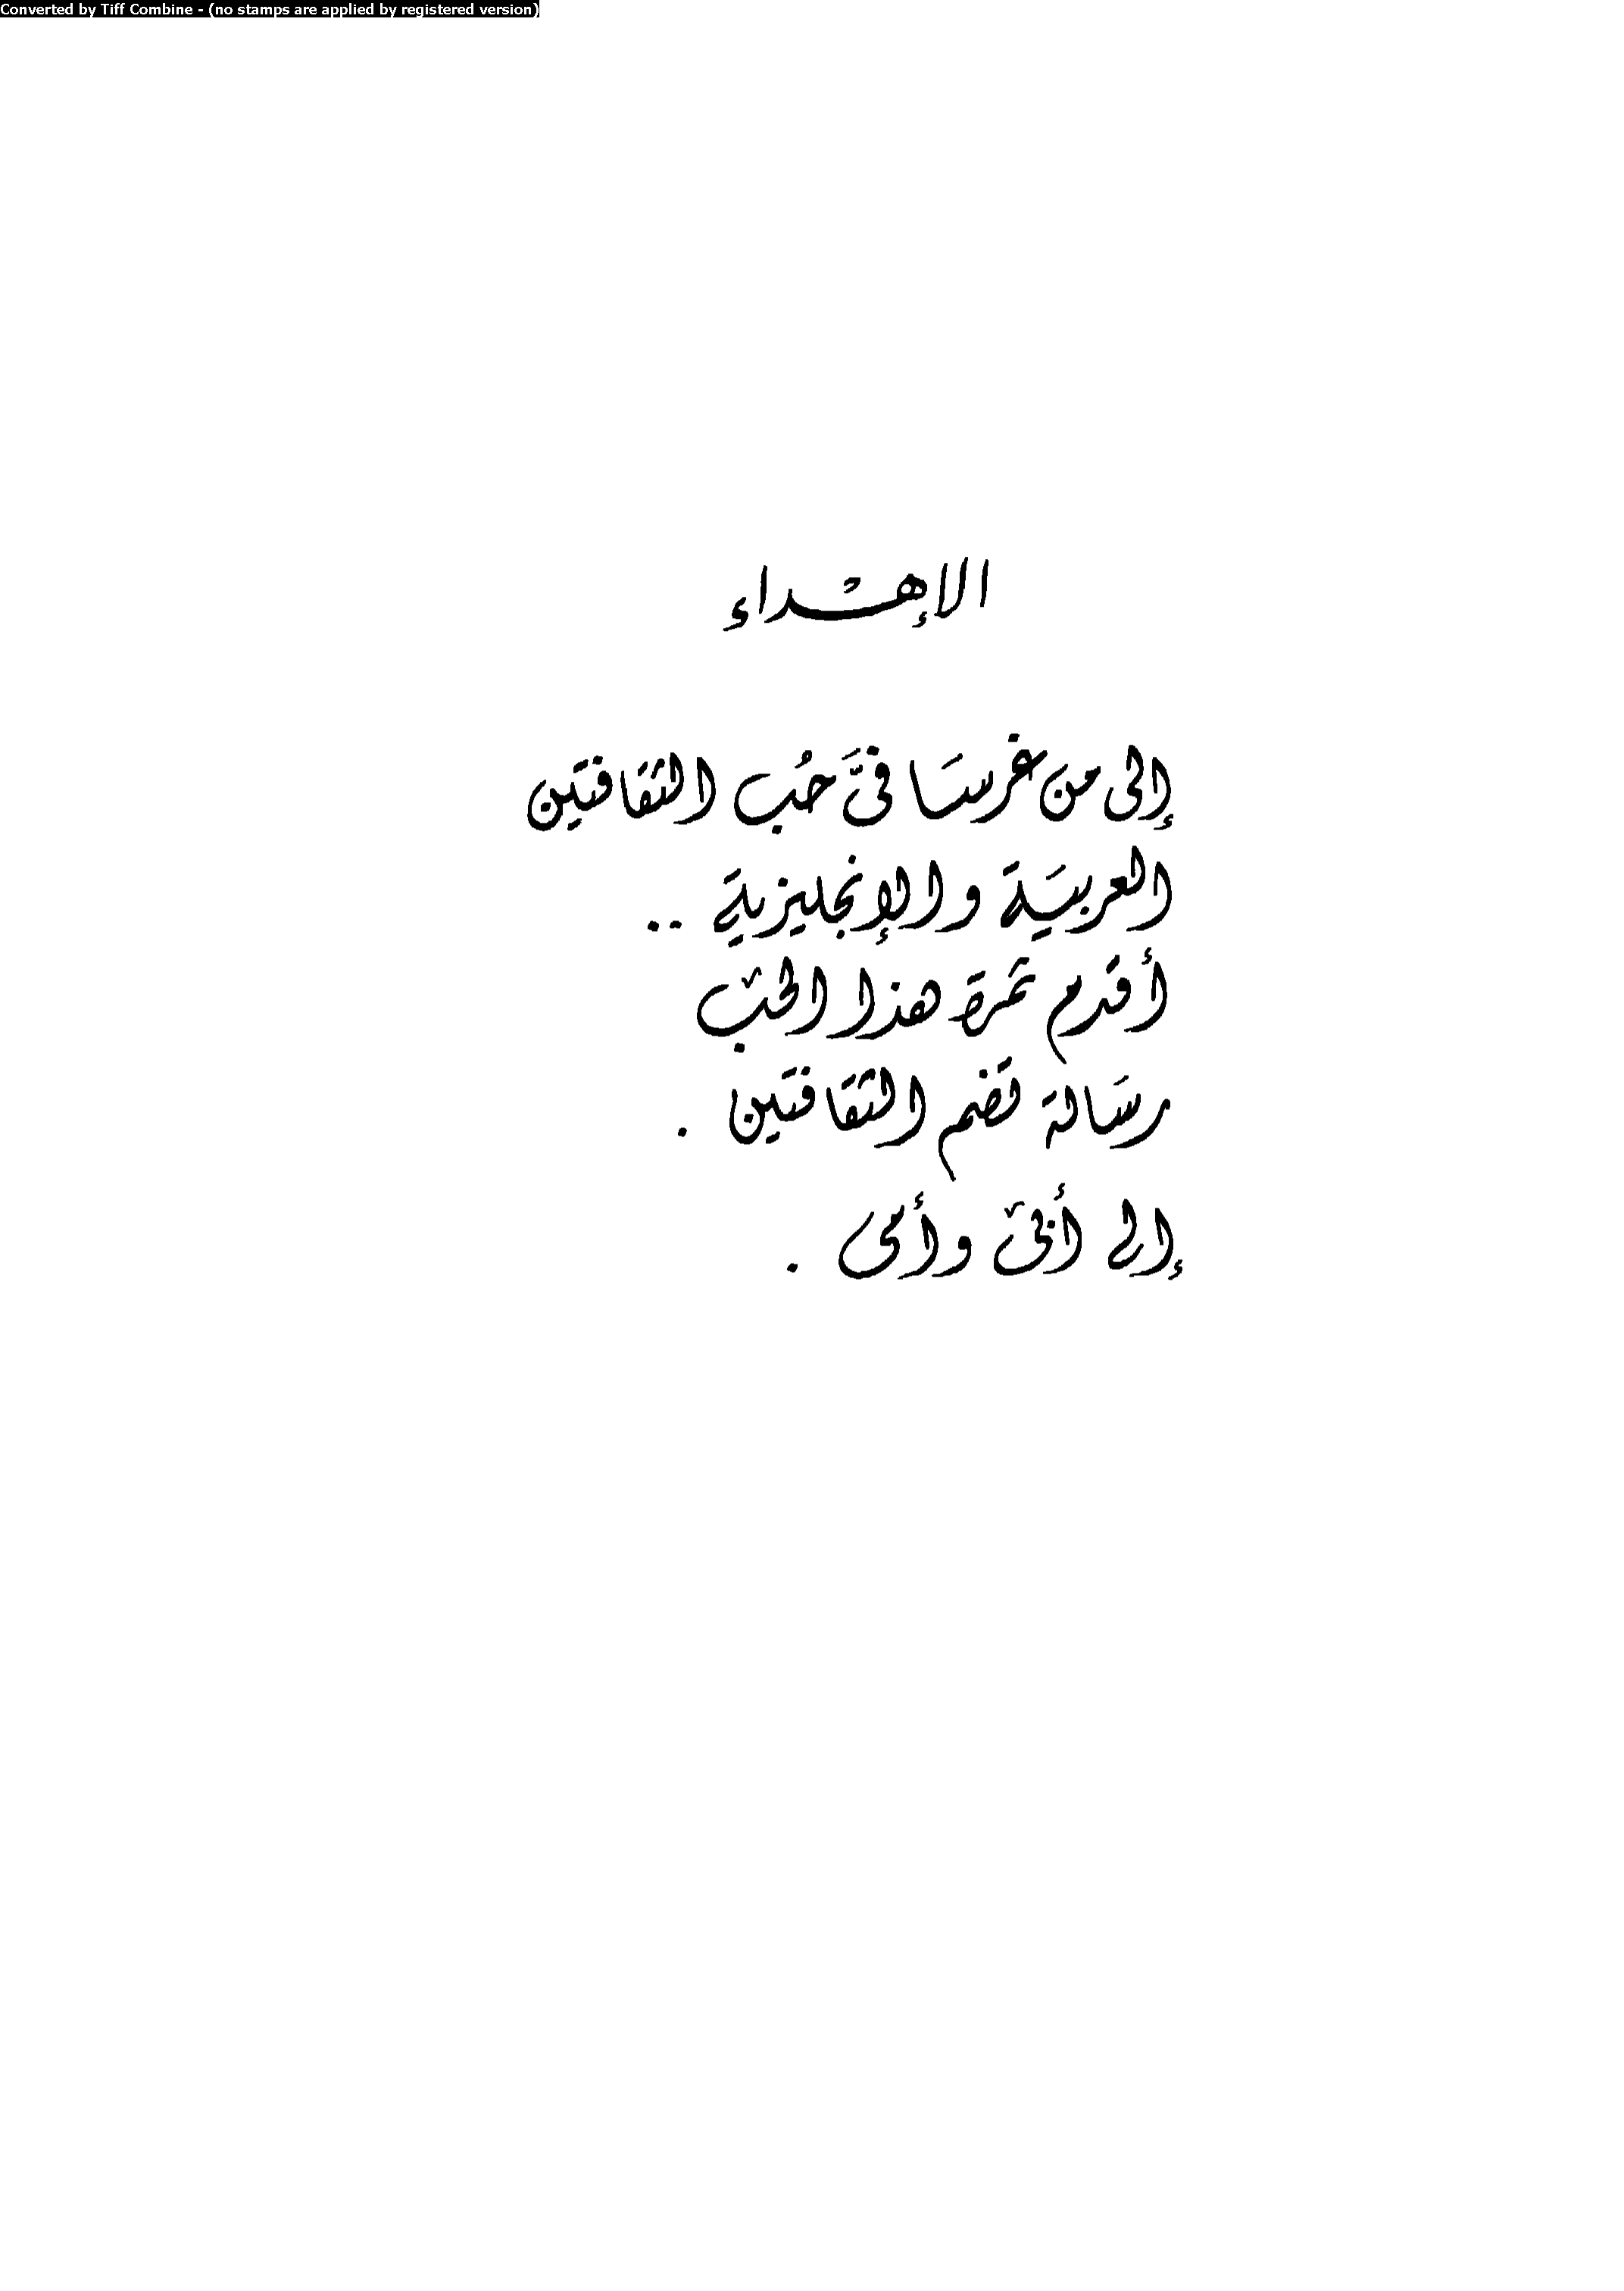 Converted by Tiff Combine - (no stamps are applied by registered version)
الإهداء
إلى من غرسَا فىَّ حُب الثقافتين
العربيَة والإنجليزية ..
أقدم ثمرة هذا الحب
رسَالة تضم الثقافتين .
إلى أبى وأمى .